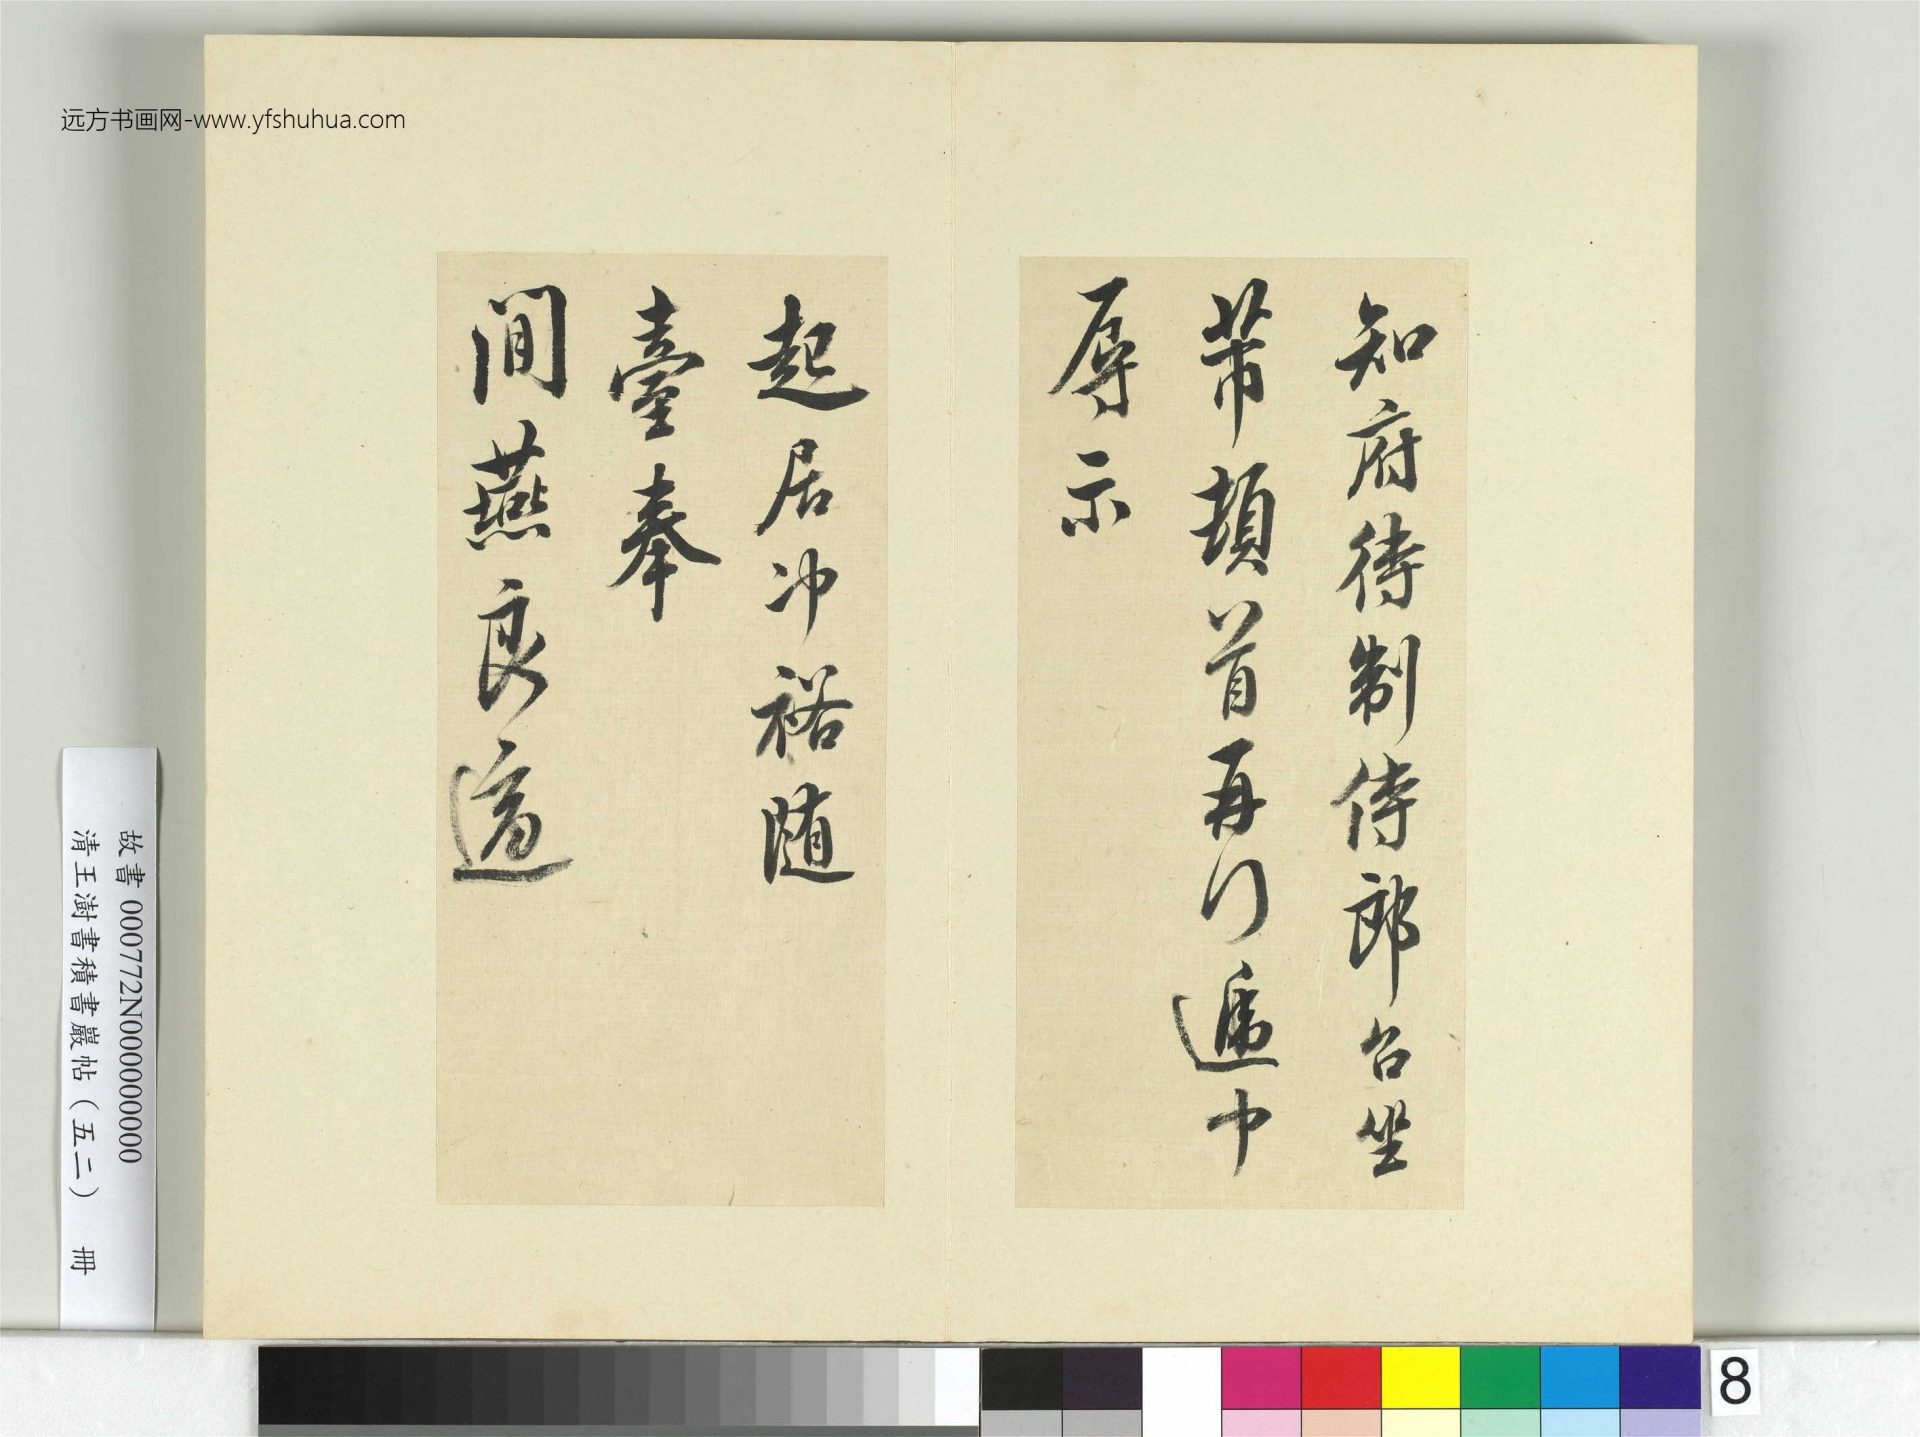 远方书画网-www.yfshuhua.com
知府待制侍郎台坐
芾頓首再行遞中
辱示
起居冲裕随
臺奉
間燕良適
故書 000772N000000000
清王澍書積書巖帖（五二） 冊
8